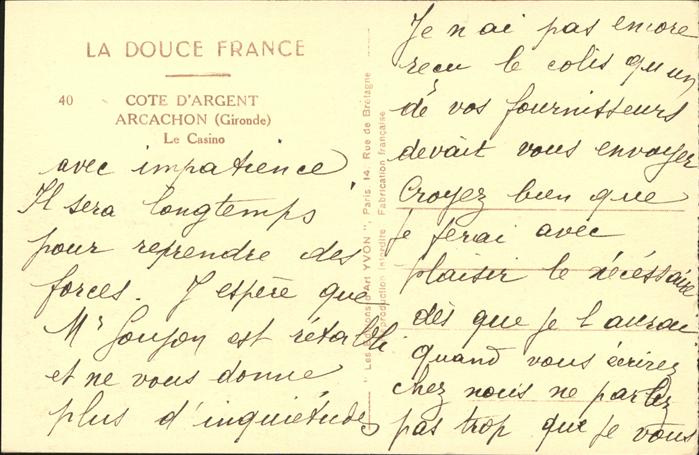 LA DOUCE FRANCE
40
COTE D'ARGENT
ARCACHON (Gironde)
Le Casino
avec impatience
Il sera longtemps
pour reprendre des
forces. J'espère que
Mr Goujon est rétabli
et ne vous donne
plus d'inquiétudes
" Les Editions d'Art YVON ", Paris 14, Rue de Bretagne
Reproduction interdite Fabrication française
Je n'ai pas encore
reçu le colis qu'un
de vos fournisseurs
devait vous envoyer
Croyez bien que
je ferai avec
plaisir le nécéssaire
dès que je l'aurai
quand vous écrirez
chez nous ne parlez
pas trop que je vous